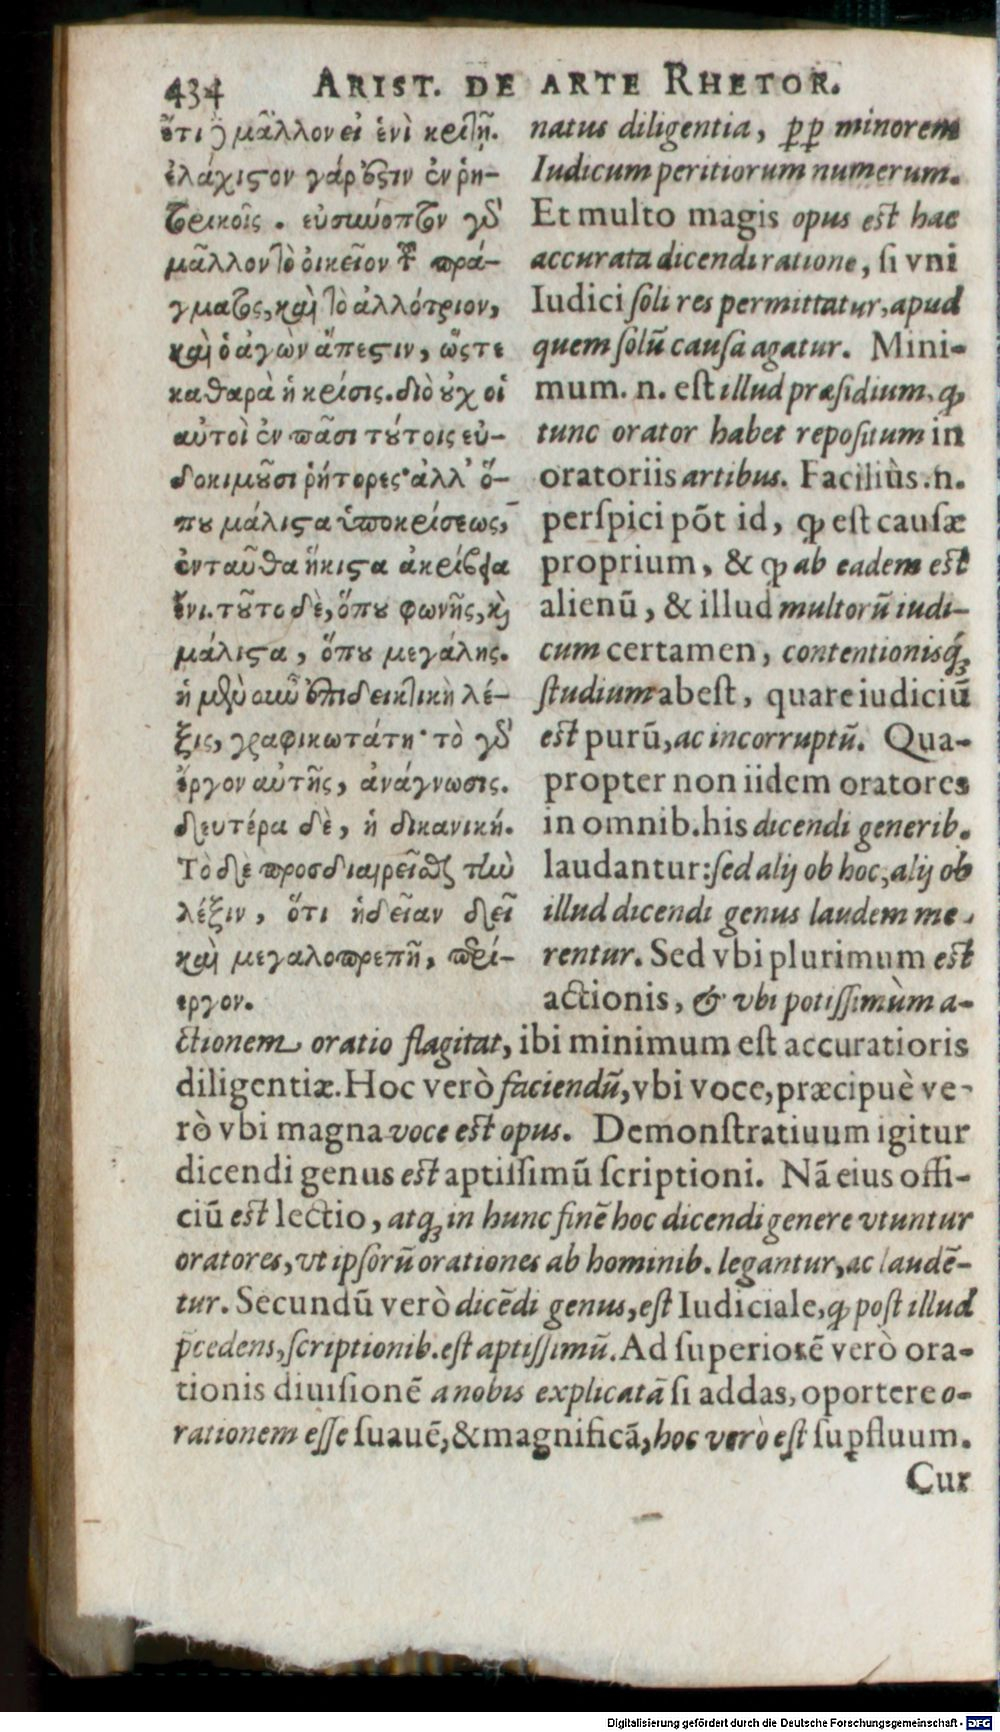 434 ARIST. DE ARTE RHETOR.
ἔτι ἢ μᾶλλον εἰ ἑνὶ κριτῇ.
ἐλάχιστον γάρ ἐστιν ἐν ῥη-
τορικοῖς . εὐσύνοπτον γὰρ
μᾶλλον τὸ οἰκεῖον τοῦ πρά-
γματος, καὶ τὸ ἀλλότριον,
καὶ ὁ ἀγὼν ἄπεστιν, ὥστε
καθαρὰ ἡ κρίσις. διὸ οὐχ οἱ
αὐτοὶ ἐν πᾶσι τούτοις εὐ-
δοκιμοῦσι ῥήτορες· ἀλλ' ὅ-
που μάλιστα ὑποκρίσεως,
ἐνταῦθα ἥκιστα ἀκρίβεια
ἔνι. τοῦτο δὲ, ὅπου φωνῆς, καὶ
μάλιστα, ὅπου μεγάλης.
ἡ μὲν οὖν ἐπιδεικτικὴ λέ-
ξις, γραφικωτάτη· τὸ γὰρ
ἔργον αὐτῆς, ἀνάγνωσις.
δευτέρα δὲ, ἡ δικανική.
Τὸ δὲ προσδιαιρεῖσθαι τὴν
λέξιν, ὅτι ἡδεῖαν δεῖ
καὶ μεγαλοπρεπῆ, περί-
εργον.
natus diligentia, ꝓꝓ minorem
Iudicum peritiorum numerum.
Et multo magis opus est hac
accurata dicendi ratione, si vni
Iudici soli res permittatur, apud
quem solũ causa agatur. Mini-
mum. n. est illud præsidium, ꝙ
tunc orator habet repositum in
oratoriis artibus. Faciliùs .n.
perspici põt id, ꝙ est causæ
proprium, & ꝙ ab eadem est
alienũ, & illud multorũ iudi-
cum certamen, contentionisq́;
studium abest, quare iudiciũ
est purũ, ac incorruptũ. Qua-
propter non iidem oratores
in omnib. his dicendi generib.
laudantur: sed alij ob hoc, alij ob
illud dicendi genus laudem me-
rentur. Sed vbi plurimum est
actionis, & vbi potissimùm a-
ctionem oratio flagitat, ibi minimum est accuratioris
diligentiæ. Hoc verò faciendũ, vbi voce, præcipuè ve-
rò vbi magna voce est opus. Demonstratiuum igitur
dicendi genus est aptissimũ scriptioni. Nã eius offi-
ciũ est lectio, atq; in hunc finẽ hoc dicendi genere vtuntur
oratores, vt ipsorũ orationes ab hominib. legantur, ac laudẽ-
tur. Secundũ verò dicẽdi genus, est Iudiciale, ꝙ post illud
p̃cedens, scriptionib. est aptissimũ. Ad superiorẽ verò ora-
tionis diuisionẽ a nobis explicatã si addas, oportere o-
rationem esse suauẽ, & magnificã, hoc verò est suꝑfluum.
Cur
Digitalisierung gefördert durch die Deutsche Forschungsgemeinschaft - DFG